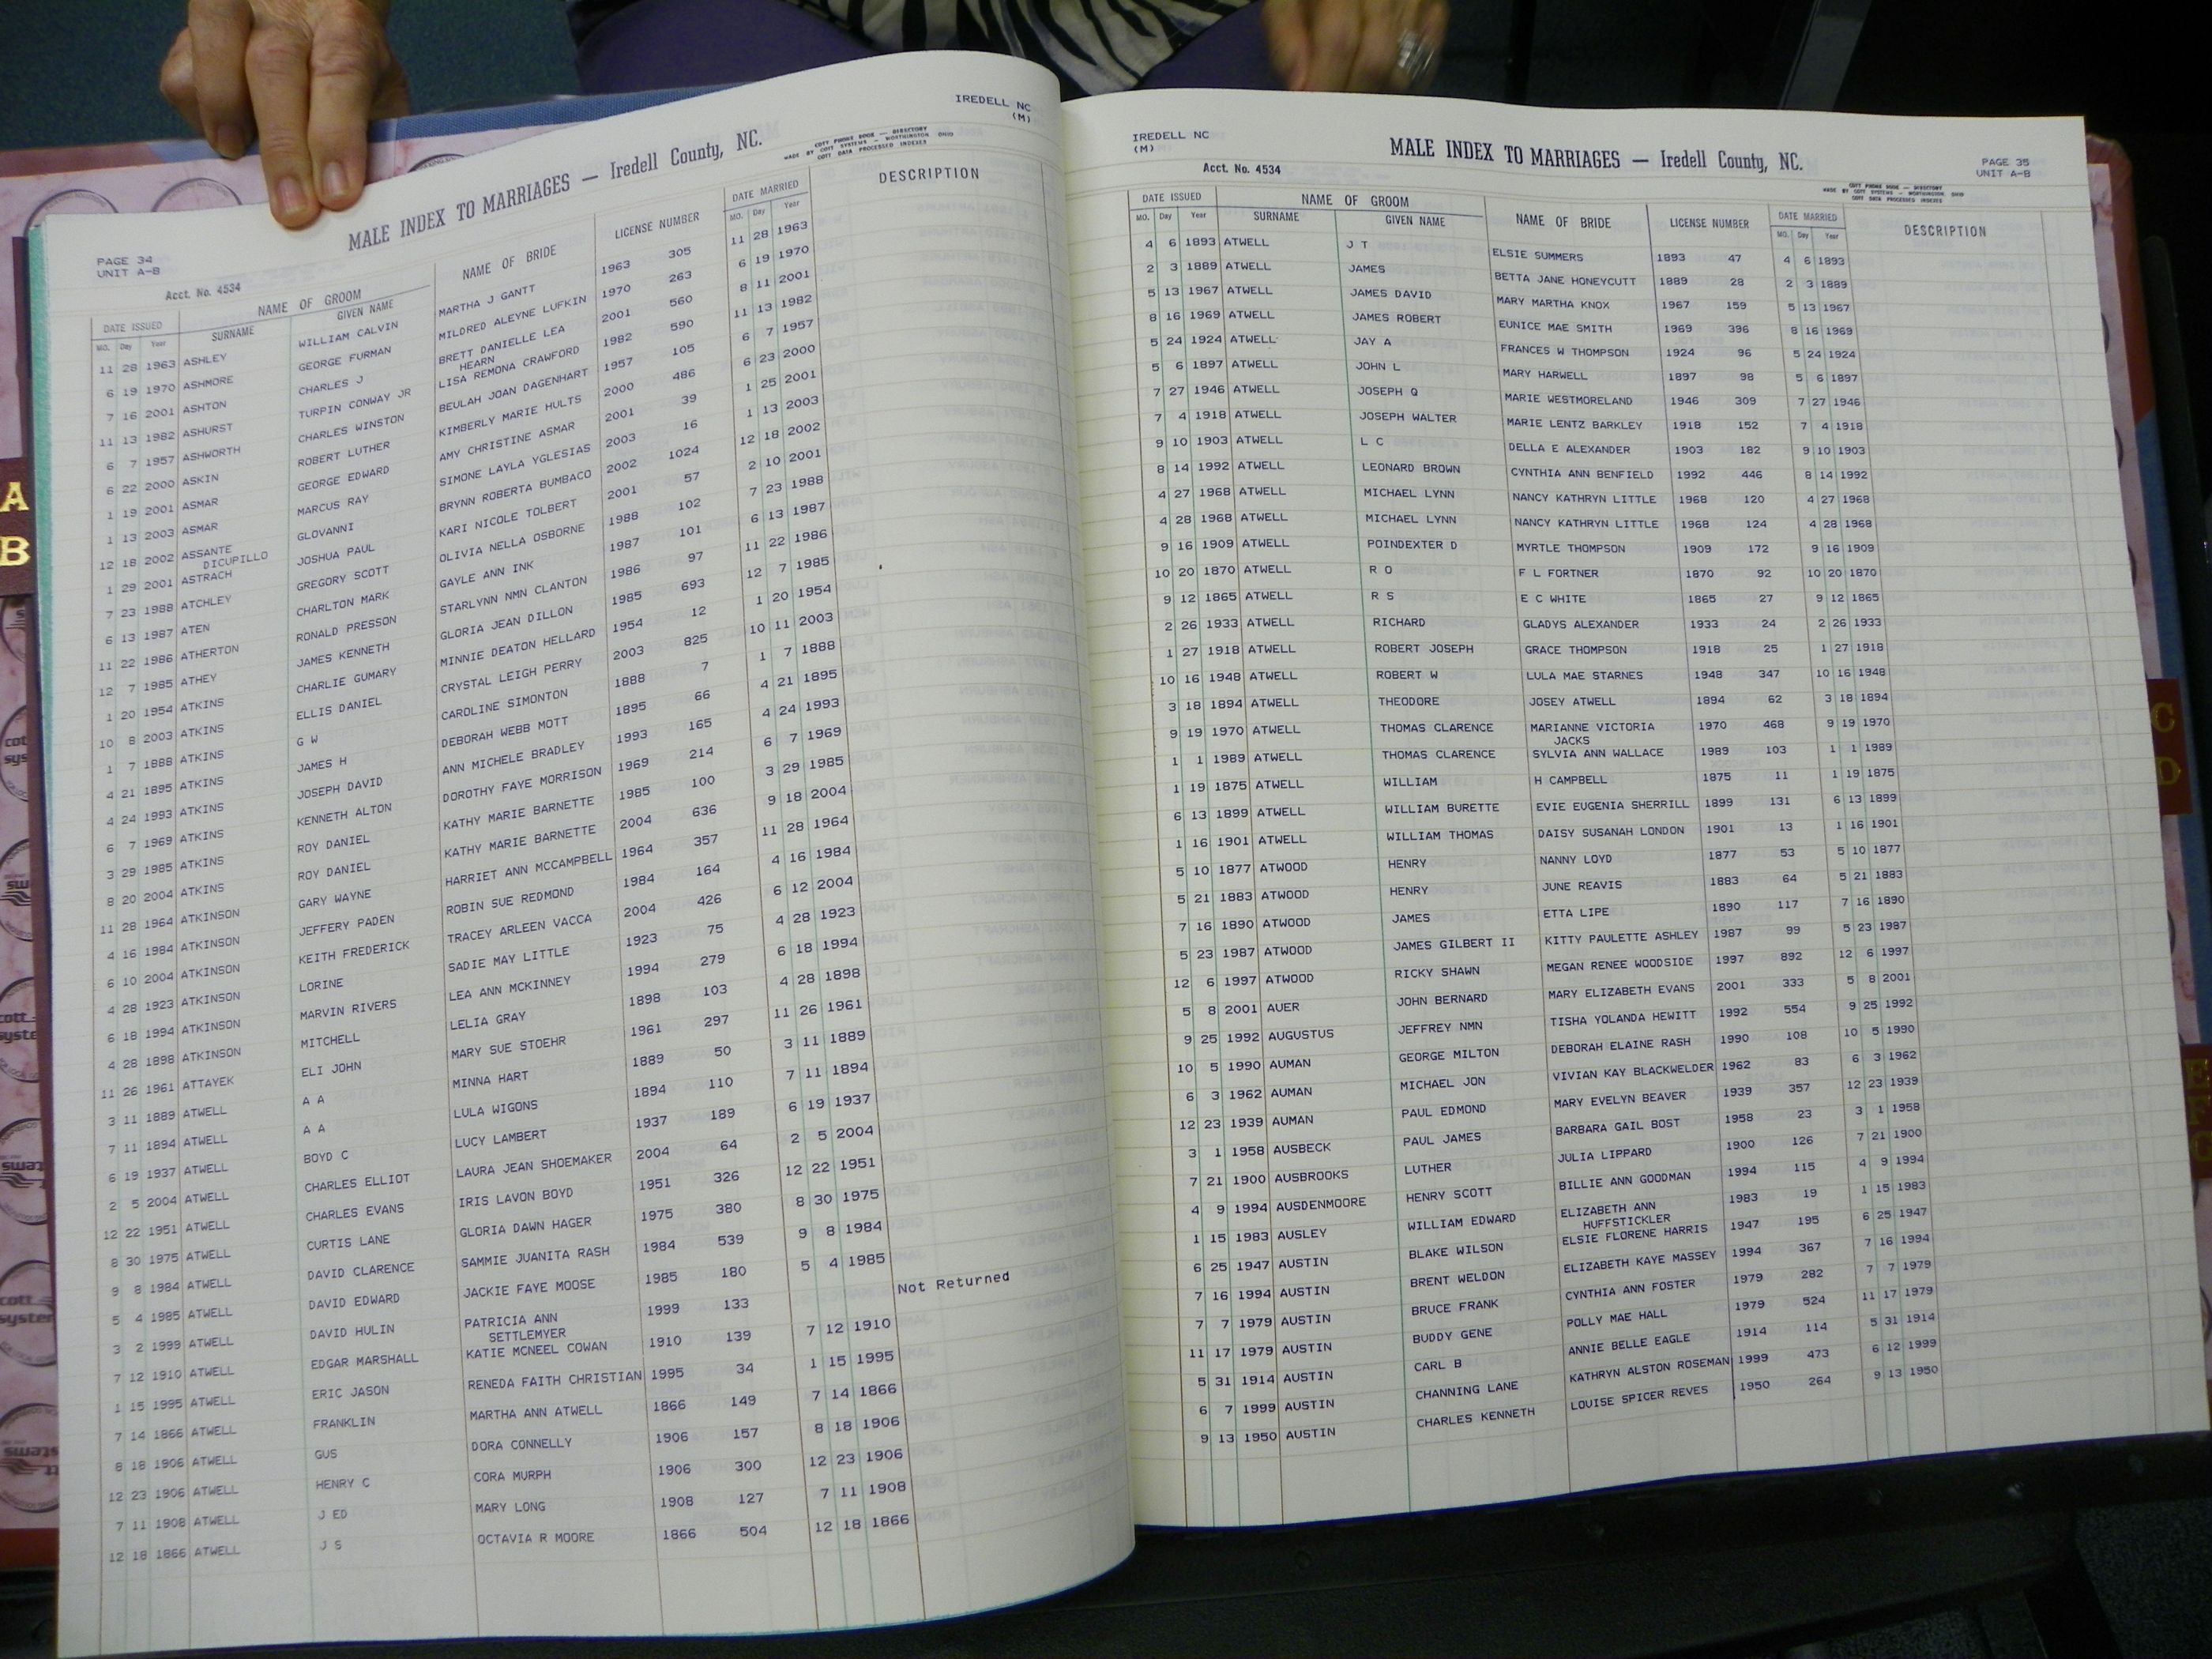 IREDELL NC
(M)
MALE INDEX TO MARRIAGES — Iredell County, NC.
COTT PHONE BOOK — DIRECTORY
MADE BY COTT SYSTEMS — WORTHINGTON OHIO
COTT DATA PROCESSED INDEXES
PAGE 34
UNIT A-B
Acct. No. 4534
DATE ISSUED NAME OF GROOM NAME OF BRIDE LICENSE NUMBER DATE MARRIED DESCRIPTION
MO. Day Year SURNAME GIVEN NAME MO. Day Year
11 28 1963 ASHLEY WILLIAM CALVIN MARTHA J GANTT 1963 305 11 28 1963
6 19 1970 ASHMORE GEORGE FURMAN MILDRED ALEYNE LUFKIN 1970 263 6 19 1970
7 16 2001 ASHTON CHARLES J BRETT DANIELLE LEA 2001 560 8 11 2001
HEARN
11 13 1982 ASHURST TURPIN CONWAY JR LISA REMONA CRAWFORD 1982 590 11 13 1982
6 7 1957 ASHWORTH CHARLES WINSTON BEULAH JOAN DAGENHART 1957 105 6 7 1957
6 22 2000 ASKIN ROBERT LUTHER KIMBERLY MARIE HULTS 2000 486 6 23 2000
1 19 2001 ASMAR GEORGE EDWARD AMY CHRISTINE ASMAR 2001 39 1 25 2001
1 13 2003 ASMAR MARCUS RAY SIMONE LAYLA YGLESIAS 2003 16 1 13 2003
12 18 2002 ASSANTE GLOVANNI BRYNN ROBERTA BUMBACO 2002 1024 12 18 2002
DICUPILLO
1 29 2001 ASTRACH JOSHUA PAUL KARI NICOLE TOLBERT 2001 57 2 10 2001
7 23 1988 ATCHLEY GREGORY SCOTT OLIVIA NELLA OSBORNE 1988 102 7 23 1988
6 13 1987 ATEN CHARLTON MARK GAYLE ANN INK 1987 101 6 13 1987
11 22 1986 ATHERTON RONALD PRESSON STARLYNN NMN CLANTON 1986 97 11 22 1986
12 7 1985 ATHEY JAMES KENNETH GLORIA JEAN DILLON 1985 693 12 7 1985
1 20 1954 ATKINS CHARLIE GUMARY MINNIE DEATON HELLARD 1954 12 1 20 1954
10 8 2003 ATKINS ELLIS DANIEL CRYSTAL LEIGH PERRY 2003 825 10 11 2003
1 7 1888 ATKINS G W CAROLINE SIMONTON 1888 7 1 7 1888
4 21 1895 ATKINS JAMES H DEBORAH WEBB MOTT 1895 66 4 21 1895
4 24 1993 ATKINS JOSEPH DAVID ANN MICHELE BRADLEY 1993 165 4 24 1993
6 7 1969 ATKINS KENNETH ALTON DOROTHY FAYE MORRISON 1969 214 6 7 1969
3 29 1985 ATKINS ROY DANIEL KATHY MARIE BARNETTE 1985 100 3 29 1985
8 20 2004 ATKINS ROY DANIEL KATHY MARIE BARNETTE 2004 636 9 18 2004
11 28 1964 ATKINSON GARY WAYNE HARRIET ANN MCCAMPBELL 1964 357 11 28 1964
4 16 1984 ATKINSON JEFFERY PADEN ROBIN SUE REDMOND 1984 164 4 16 1984
6 10 2004 ATKINSON KEITH FREDERICK TRACEY ARLEEN VACCA 2004 426 6 12 2004
4 28 1923 ATKINSON LORINE SADIE MAY LITTLE 1923 75 4 28 1923
6 18 1994 ATKINSON MARVIN RIVERS LEA ANN MCKINNEY 1994 279 6 18 1994
4 28 1898 ATKINSON MITCHELL LELIA GRAY 1898 103 4 28 1898
11 26 1961 ATTAYEK ELI JOHN MARY SUE STOEHR 1961 297 11 26 1961
3 11 1889 ATWELL A A MINNA HART 1889 50 3 11 1889
7 11 1894 ATWELL A A LULA WIGONS 1894 110 7 11 1894
6 19 1937 ATWELL BOYD C LUCY LAMBERT 1937 189 6 19 1937
2 5 2004 ATWELL CHARLES ELLIOT LAURA JEAN SHOEMAKER 2004 64 2 5 2004
12 22 1951 ATWELL CHARLES EVANS IRIS LAVON BOYD 1951 326 12 22 1951
8 30 1975 ATWELL CURTIS LANE GLORIA DAWN HAGER 1975 380 8 30 1975
9 8 1984 ATWELL DAVID CLARENCE SAMMIE JUANITA RASH 1984 539 9 8 1984
5 4 1985 ATWELL DAVID EDWARD JACKIE FAYE MOOSE 1985 180 5 4 1985
3 2 1999 ATWELL DAVID HULIN PATRICIA ANN 1999 133 Not Returned
SETTLEMYER
7 12 1910 ATWELL EDGAR MARSHALL KATIE MCNEEL COWAN 1910 139 7 12 1910
1 15 1995 ATWELL ERIC JASON RENEDA FAITH CHRISTIAN 1995 34 1 15 1995
7 14 1866 ATWELL FRANKLIN MARTHA ANN ATWELL 1866 149 7 14 1866
8 18 1906 ATWELL GUS DORA CONNELLY 1906 157 8 18 1906
12 23 1906 ATWELL HENRY C CORA MURPH 1906 300 12 23 1906
7 11 1908 ATWELL J ED MARY LONG 1908 127 7 11 1908
12 18 1866 ATWELL J S OCTAVIA R MOORE 1866 504 12 18 1866
IREDELL NC
(M)
MALE INDEX TO MARRIAGES — Iredell County, NC.
PAGE 35
UNIT A-B
Acct. No. 4534
COTT PHONE BOOK — DIRECTORY
MADE BY COTT SYSTEMS — WORTHINGTON OHIO
COTT DATA PROCESSED INDEXES
DATE ISSUED NAME OF GROOM NAME OF BRIDE LICENSE NUMBER DATE MARRIED DESCRIPTION
MO. Day Year SURNAME GIVEN NAME MO. Day Year
4 6 1893 ATWELL J T ELSIE SUMMERS 1893 47 4 6 1893
2 3 1889 ATWELL JAMES BETTA JANE HONEYCUTT 1889 28 2 3 1889
5 13 1967 ATWELL JAMES DAVID MARY MARTHA KNOX 1967 159 5 13 1967
8 16 1969 ATWELL JAMES ROBERT EUNICE MAE SMITH 1969 396 8 16 1969
5 24 1924 ATWELL JAY A FRANCES W THOMPSON 1924 96 5 24 1924
5 6 1897 ATWELL JOHN L MARY HARWELL 1897 98 5 6 1897
7 27 1946 ATWELL JOSEPH Q MARIE WESTMORELAND 1946 309 7 27 1946
7 4 1918 ATWELL JOSEPH WALTER MARIE LENTZ BARKLEY 1918 152 7 4 1918
9 10 1903 ATWELL L C DELLA E ALEXANDER 1903 182 9 10 1903
8 14 1992 ATWELL LEONARD BROWN CYNTHIA ANN BENFIELD 1992 446 8 14 1992
4 27 1968 ATWELL MICHAEL LYNN NANCY KATHRYN LITTLE 1968 120 4 27 1968
4 28 1968 ATWELL MICHAEL LYNN NANCY KATHRYN LITTLE 1968 124 4 28 1968
9 16 1909 ATWELL POINDEXTER D MYRTLE THOMPSON 1909 172 9 16 1909
10 20 1870 ATWELL R O F L FORTNER 1870 92 10 20 1870
9 12 1865 ATWELL R S E C WHITE 1865 27 9 12 1865
2 26 1933 ATWELL RICHARD GLADYS ALEXANDER 1933 24 2 26 1933
1 27 1918 ATWELL ROBERT JOSEPH GRACE THOMPSON 1918 25 1 27 1918
10 16 1948 ATWELL ROBERT W LULA MAE STARNES 1948 347 10 16 1948
3 18 1894 ATWELL THEODORE JOSEY ATWELL 1894 62 3 18 1894
9 19 1970 ATWELL THOMAS CLARENCE MARIANNE VICTORIA 1970 468 9 19 1970
JACKS
1 1 1989 ATWELL THOMAS CLARENCE SYLVIA ANN WALLACE 1989 103 1 1 1989
1 19 1875 ATWELL WILLIAM H CAMPBELL 1875 11 1 19 1875
6 13 1899 ATWELL WILLIAM BURETTE EVIE EUGENIA SHERRILL 1899 131 6 13 1899
1 16 1901 ATWELL WILLIAM THOMAS DAISY SUSANAH LONDON 1901 13 1 16 1901
5 10 1877 ATWOOD HENRY NANNY LOYD 1877 53 5 10 1877
5 21 1883 ATWOOD HENRY JUNE REAVIS 1883 64 5 21 1883
7 16 1890 ATWOOD JAMES ETTA LIPE 1890 117 7 16 1890
5 23 1987 ATWOOD JAMES GILBERT II KITTY PAULETTE ASHLEY 1987 99 5 23 1987
12 6 1997 ATWOOD RICKY SHAWN MEGAN RENEE WOODSIDE 1997 892 12 6 1997
5 8 2001 AUER JOHN BERNARD MARY ELIZABETH EVANS 2001 333 5 8 2001
9 25 1992 AUGUSTUS JEFFREY NMN TISHA YOLANDA HEWITT 1992 554 9 25 1992
10 5 1990 AUMAN GEORGE MILTON DEBORAH ELAINE RASH 1990 108 10 5 1990
6 3 1962 AUMAN MICHAEL JON VIVIAN KAY BLACKWELDER 1962 83 6 3 1962
12 23 1939 AUMAN PAUL EDMOND MARY EVELYN BEAVER 1939 357 12 23 1939
3 1 1958 AUSBECK PAUL JAMES BARBARA GAIL BOST 1958 23 3 1 1958
7 21 1900 AUSBROOKS LUTHER JULIA LIPPARD 1900 126 7 21 1900
4 9 1994 AUSDENMOORE HENRY SCOTT BILLIE ANN GOODMAN 1994 115 4 9 1994
1 15 1983 AUSLEY WILLIAM EDWARD ELIZABETH ANN 1983 19 1 15 1983
HUFFSTICKLER
6 25 1947 AUSTIN BLAKE WILSON ELSIE FLORENE HARRIS 1947 195 6 25 1947
7 16 1994 AUSTIN BRENT WELDON ELIZABETH KAYE MASSEY 1994 367 7 16 1994
7 7 1979 AUSTIN BRUCE FRANK CYNTHIA ANN FOSTER 1979 282 7 7 1979
11 17 1979 AUSTIN BUDDY GENE POLLY MAE HALL 1979 524 11 17 1979
5 31 1914 AUSTIN CARL B ANNIE BELLE EAGLE 1914 114 5 31 1914
6 7 1999 AUSTIN CHANNING LANE KATHRYN ALSTON ROSEMAN 1999 473 6 12 1999
9 13 1950 AUSTIN CHARLES KENNETH LOUISE SPICER REVES 1950 264 9 13 1950
A
B
C
D